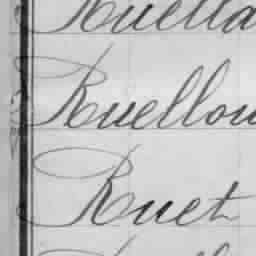 Ruella
Ruellou
Ruet